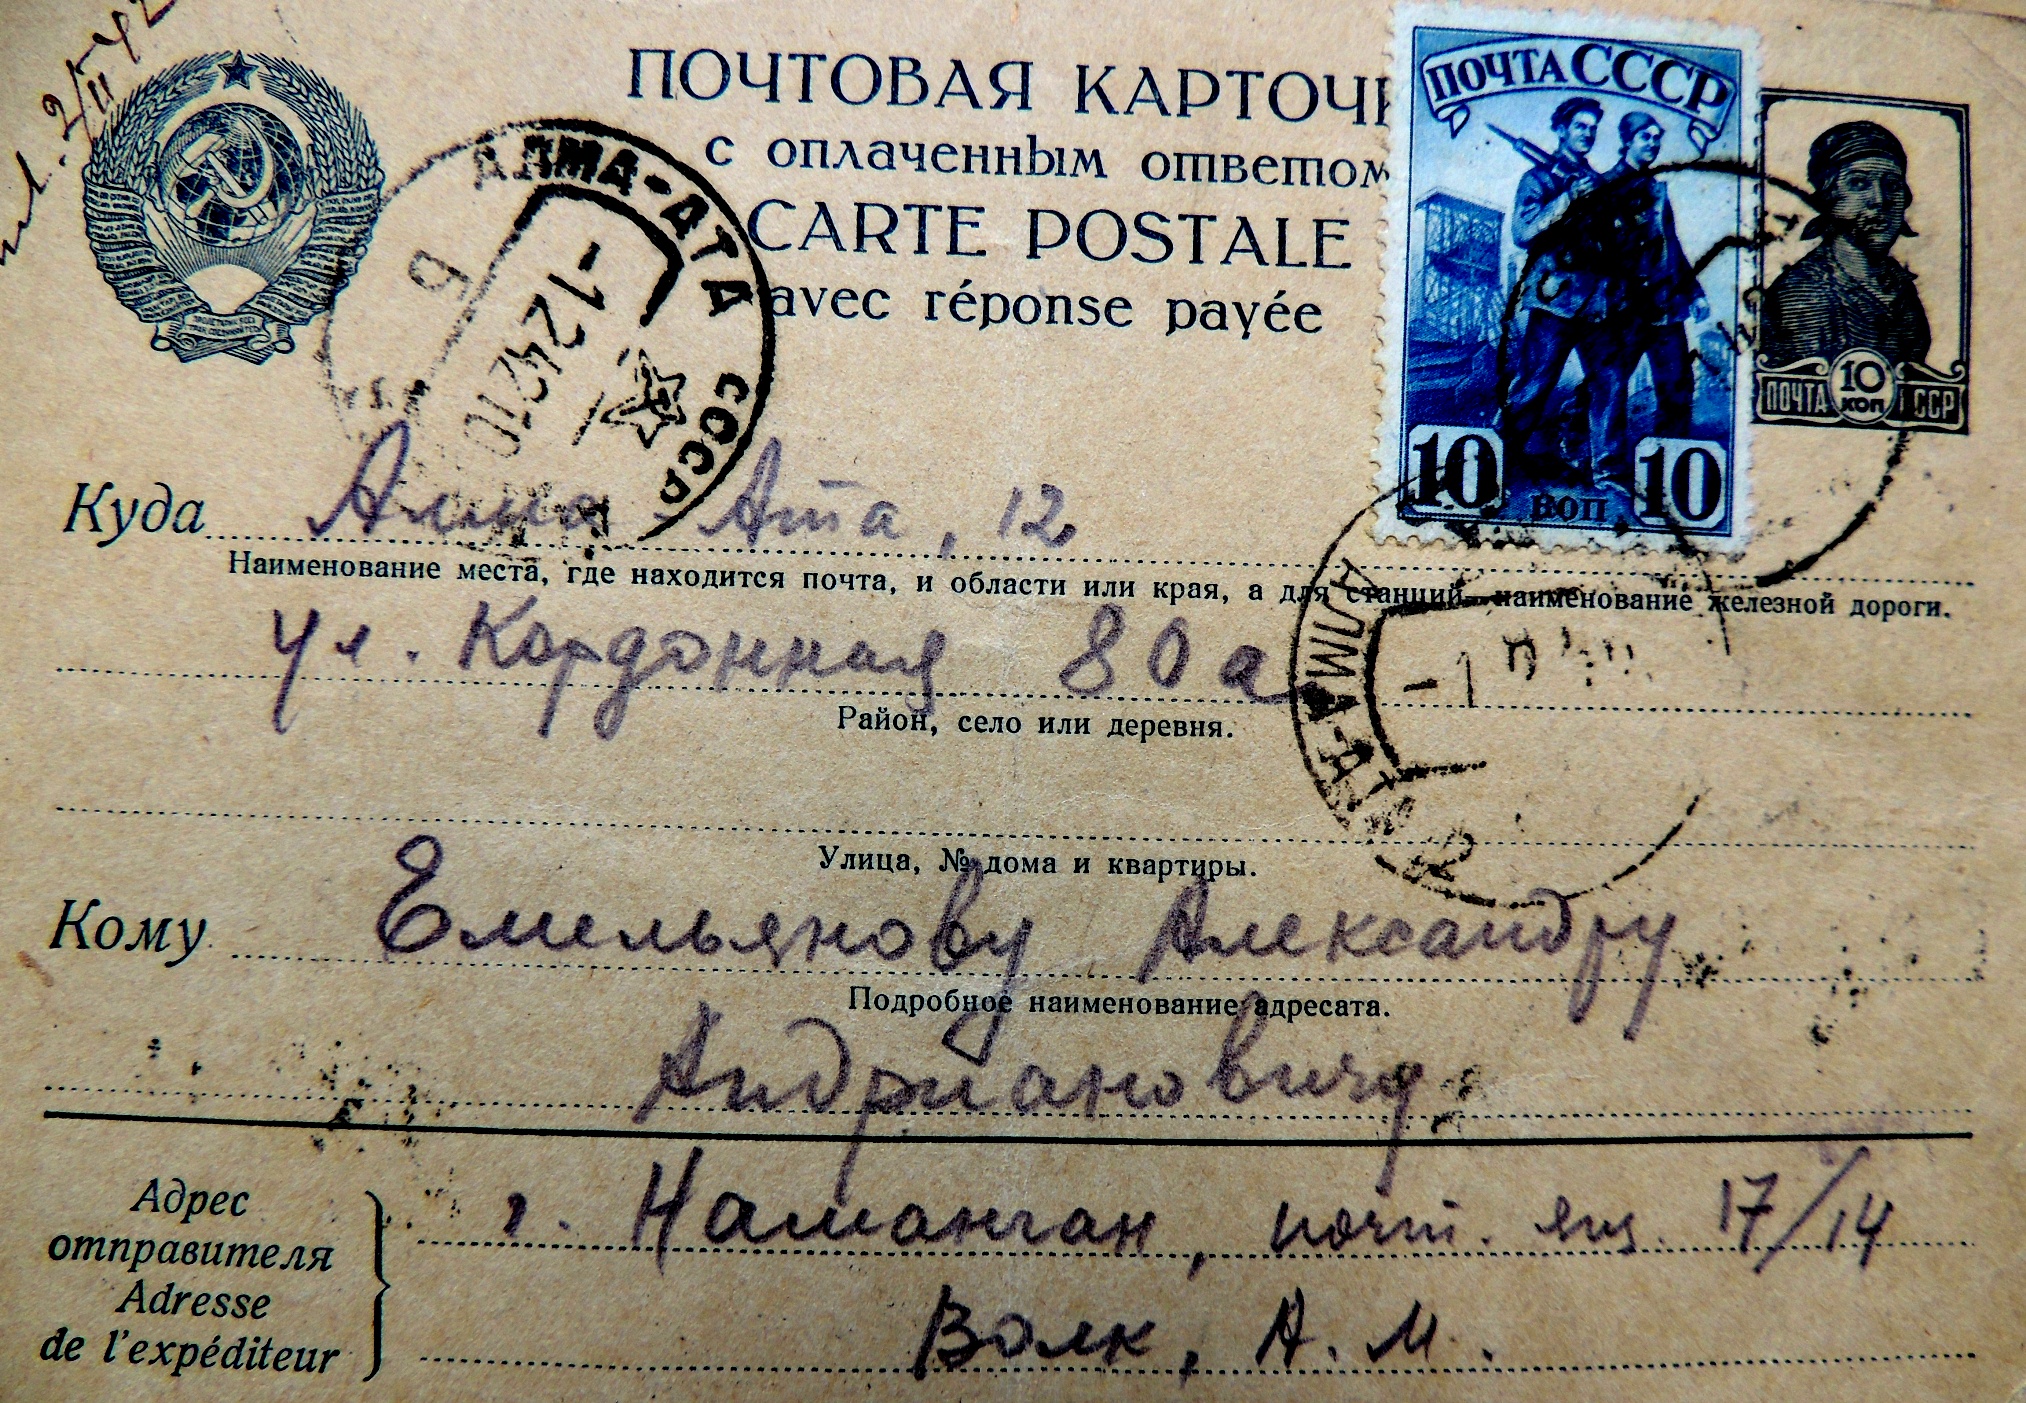 2/II 42
ПОЧТОВАЯ КАРТОЧК
с оплаченным ответом
CARTE POSTALE
avec réponse payée
ПОЧТА СССР
10 КОП. 10
ПОЧТА 10 КОП СССР
АЛМА-АТА СССР
-1 2 42 10
Куда Алма-Ата, 12
Наименование места, где находится почта, и области или края, а для станций наименование железной дороги.
ул. Кордонная 80а
Район, село или деревня.
АЛМА-АТА
Улица, № дома и квартиры.
Кому Емельянову Александру
Подробное наименование адресата.
Андриановичу
Адрес отправителя
Adresse de l'expéditeur
г. Наманган, почт. ящ. 17/14
Волк, А. М.